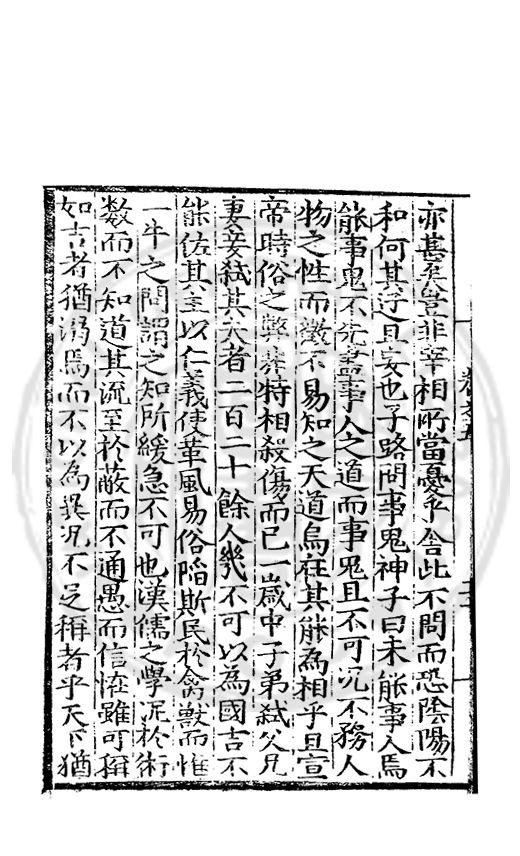 亦甚矣豈非宰相所當憂乎舍此不問而恐陰陽不
和何其迂且妄也子路問事鬼神子曰未能事人焉
能事鬼不先盡事人之道而事鬼且不可况不務人
物之性而徵不易知之天道烏在其能為相乎且宣
帝時俗之弊非特相殺傷而已一歲中子弟弑父兄
妻妾弑其夫者二百二十餘人幾不可以為國吉不
能佐其主以仁義使革風易俗陷斯民於禽獸而惟
一牛之問謂之知所緩急不可也漢儒之學泥於術
数而不知道其流至於蔽而不通愚而信恠雖可稱
如吉者猶溺焉而不以為異况不足稱者乎天下猶